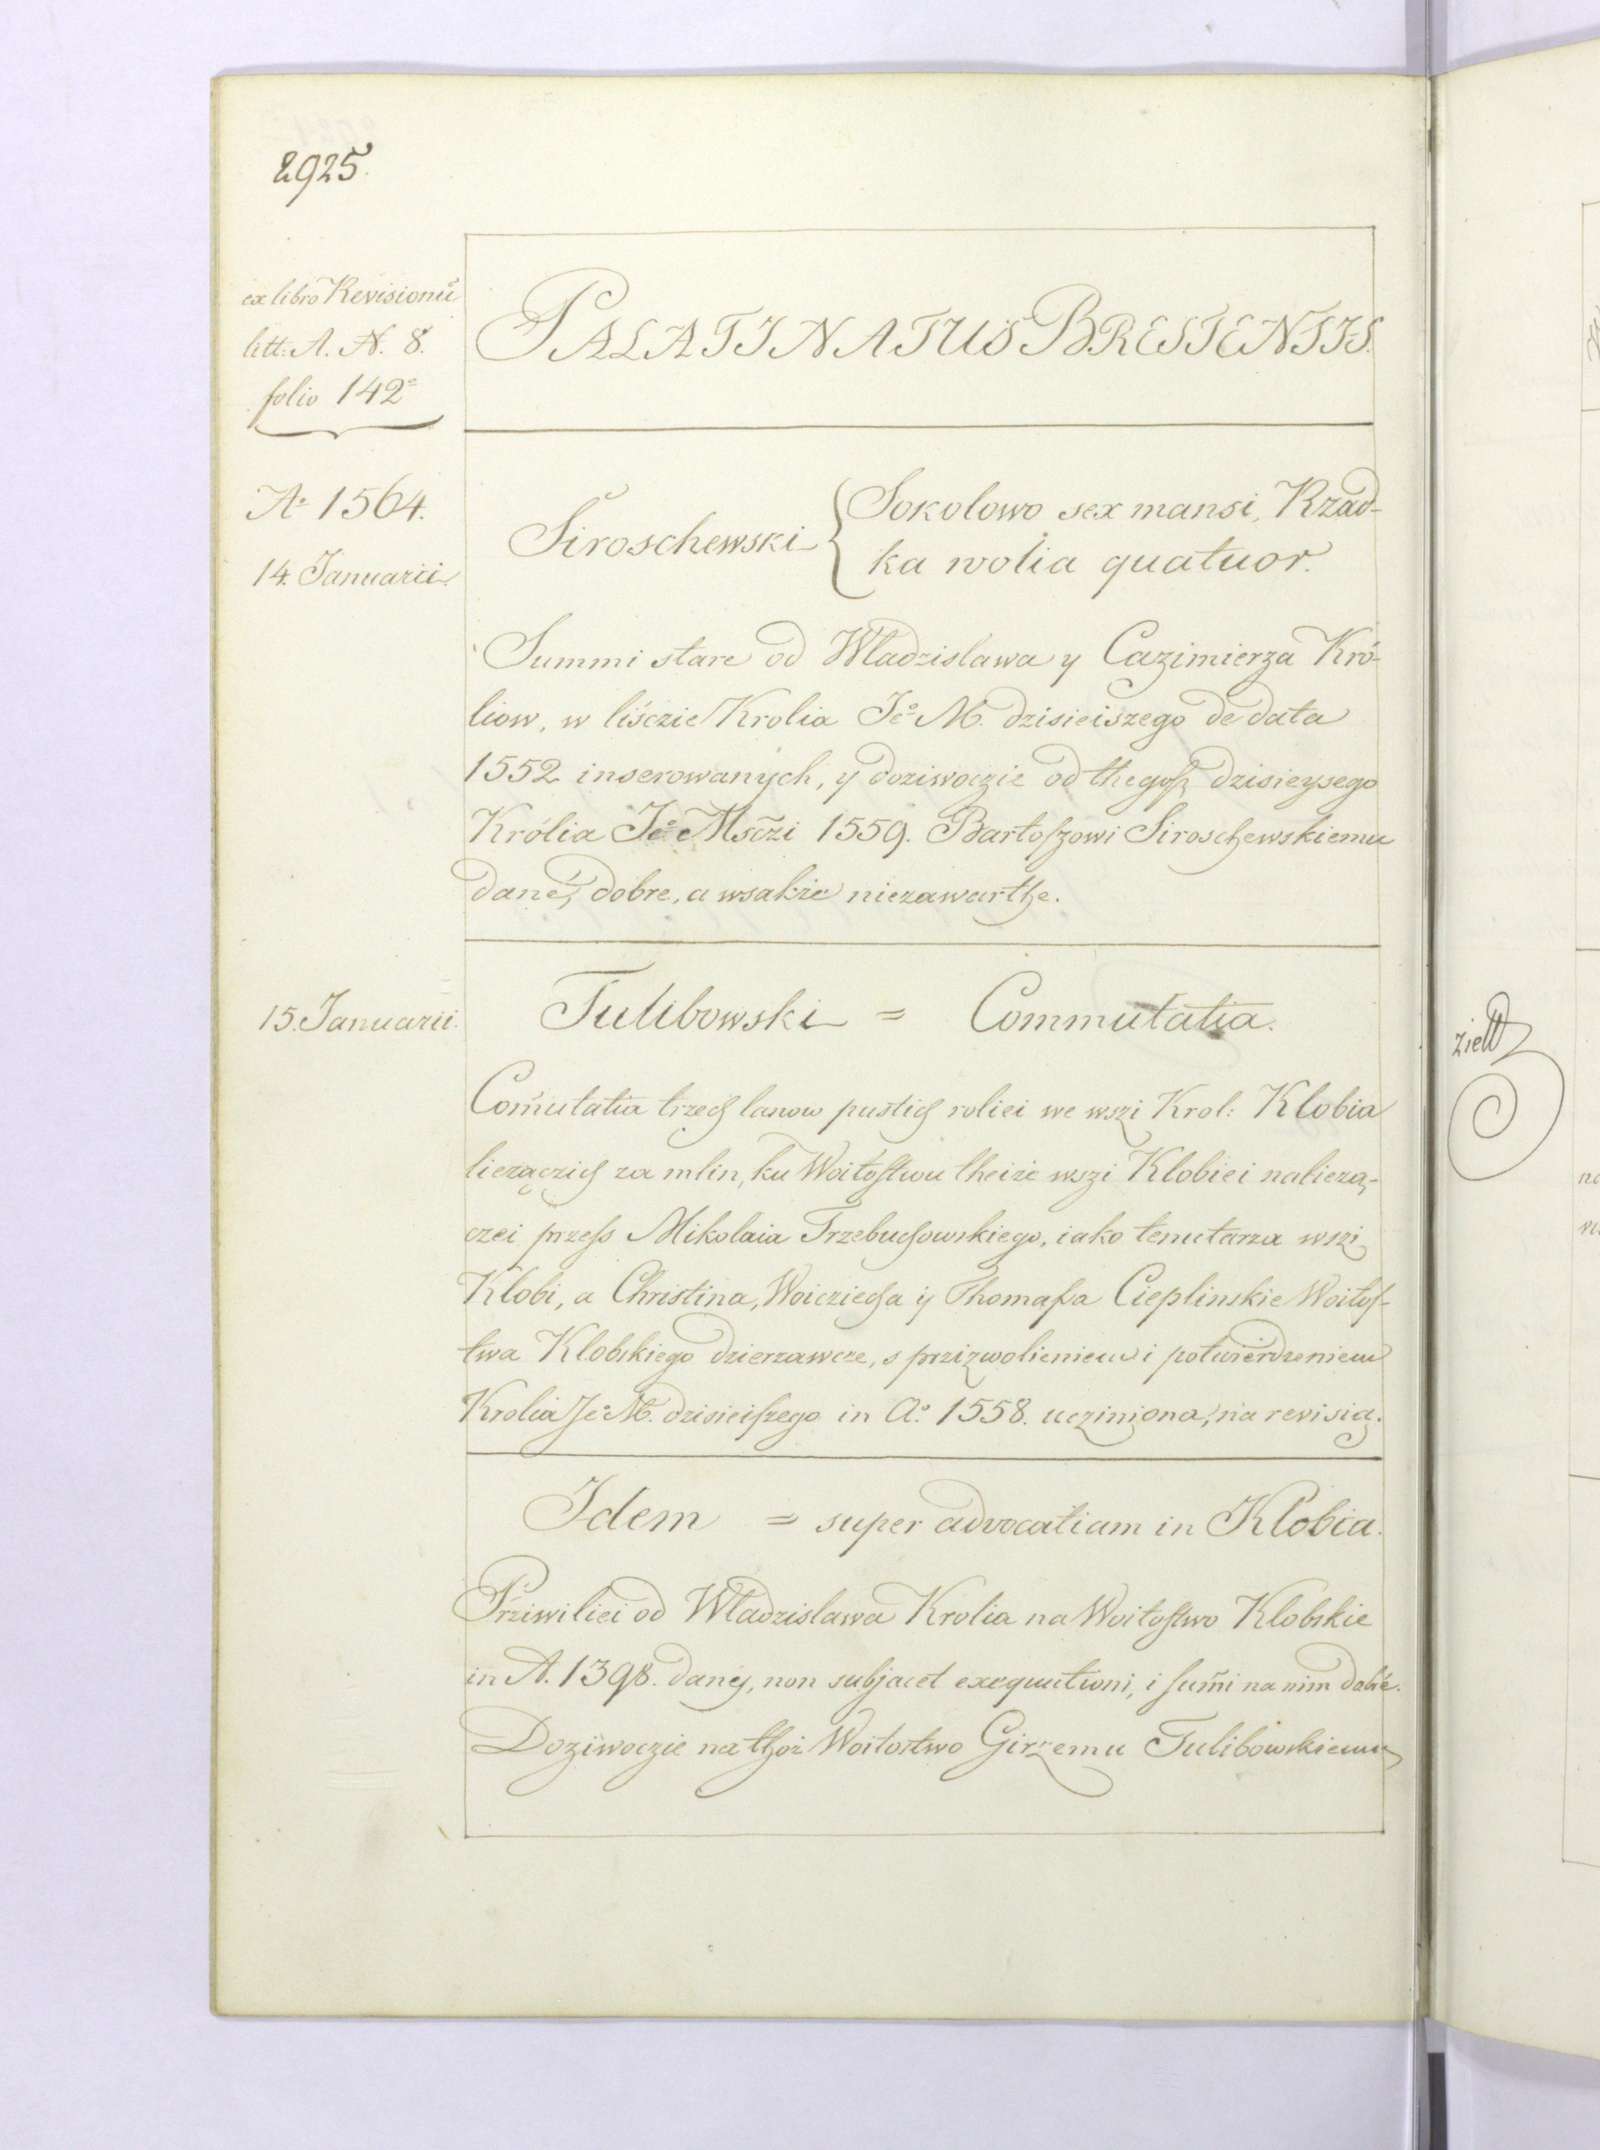 2925.
ex libro Revisionū
litt: A. N. 8.
folio 142
PALATINATUS BRESTENSIS.
Aº 1564.
14. Januarii.
Siroschewski { Sokolowo sex mansi, Rzad-
ka wolia quatuor.
Summi stare od Władzislawa y Cazimierza Kró-
liow, w liśczie Krolia Jeº M. dzisieiszego de data
1552 inserowanych, y doziwoczie od thegoſz dzisieysego
Królia Jeº Msczi 1559. Bartoſzowi Siroschewskiemu
dane, dobre, a wsakże niezawarthe.
15. Januarii.
Tulibowski = Commutatia.
Com̄utatia trzech lanow pustich roliei we wszi Krol: Klobia
liezączich za mlin, ku Woitoſtwu theiże wszi Klobiei nalieżą-
czei przeſs Mikolaia Trzebuchowskiego, iako tenutarza wszi
Klobi, a Christina, Woicziecha ij Thomaſsa Cieplinskie Woitoſ-
twa Klobskiego dzierzawcze, s przizwolieniem i potwierdzeniem
Krolia Jeº M. dzisieiſzego in Aº 1558. ucziniona, na revisią.
Idem = super advocatiam in Klobia.
Prziwiliei od Władzislawa Krolia na Woitoſtwo Klobskie
in A. 1398. danij, non subjacet exequutioni, i ſum̄i na nim
Doziwoczie na thoż Woitostwo Girzemu Tulibowskiemu
zielt